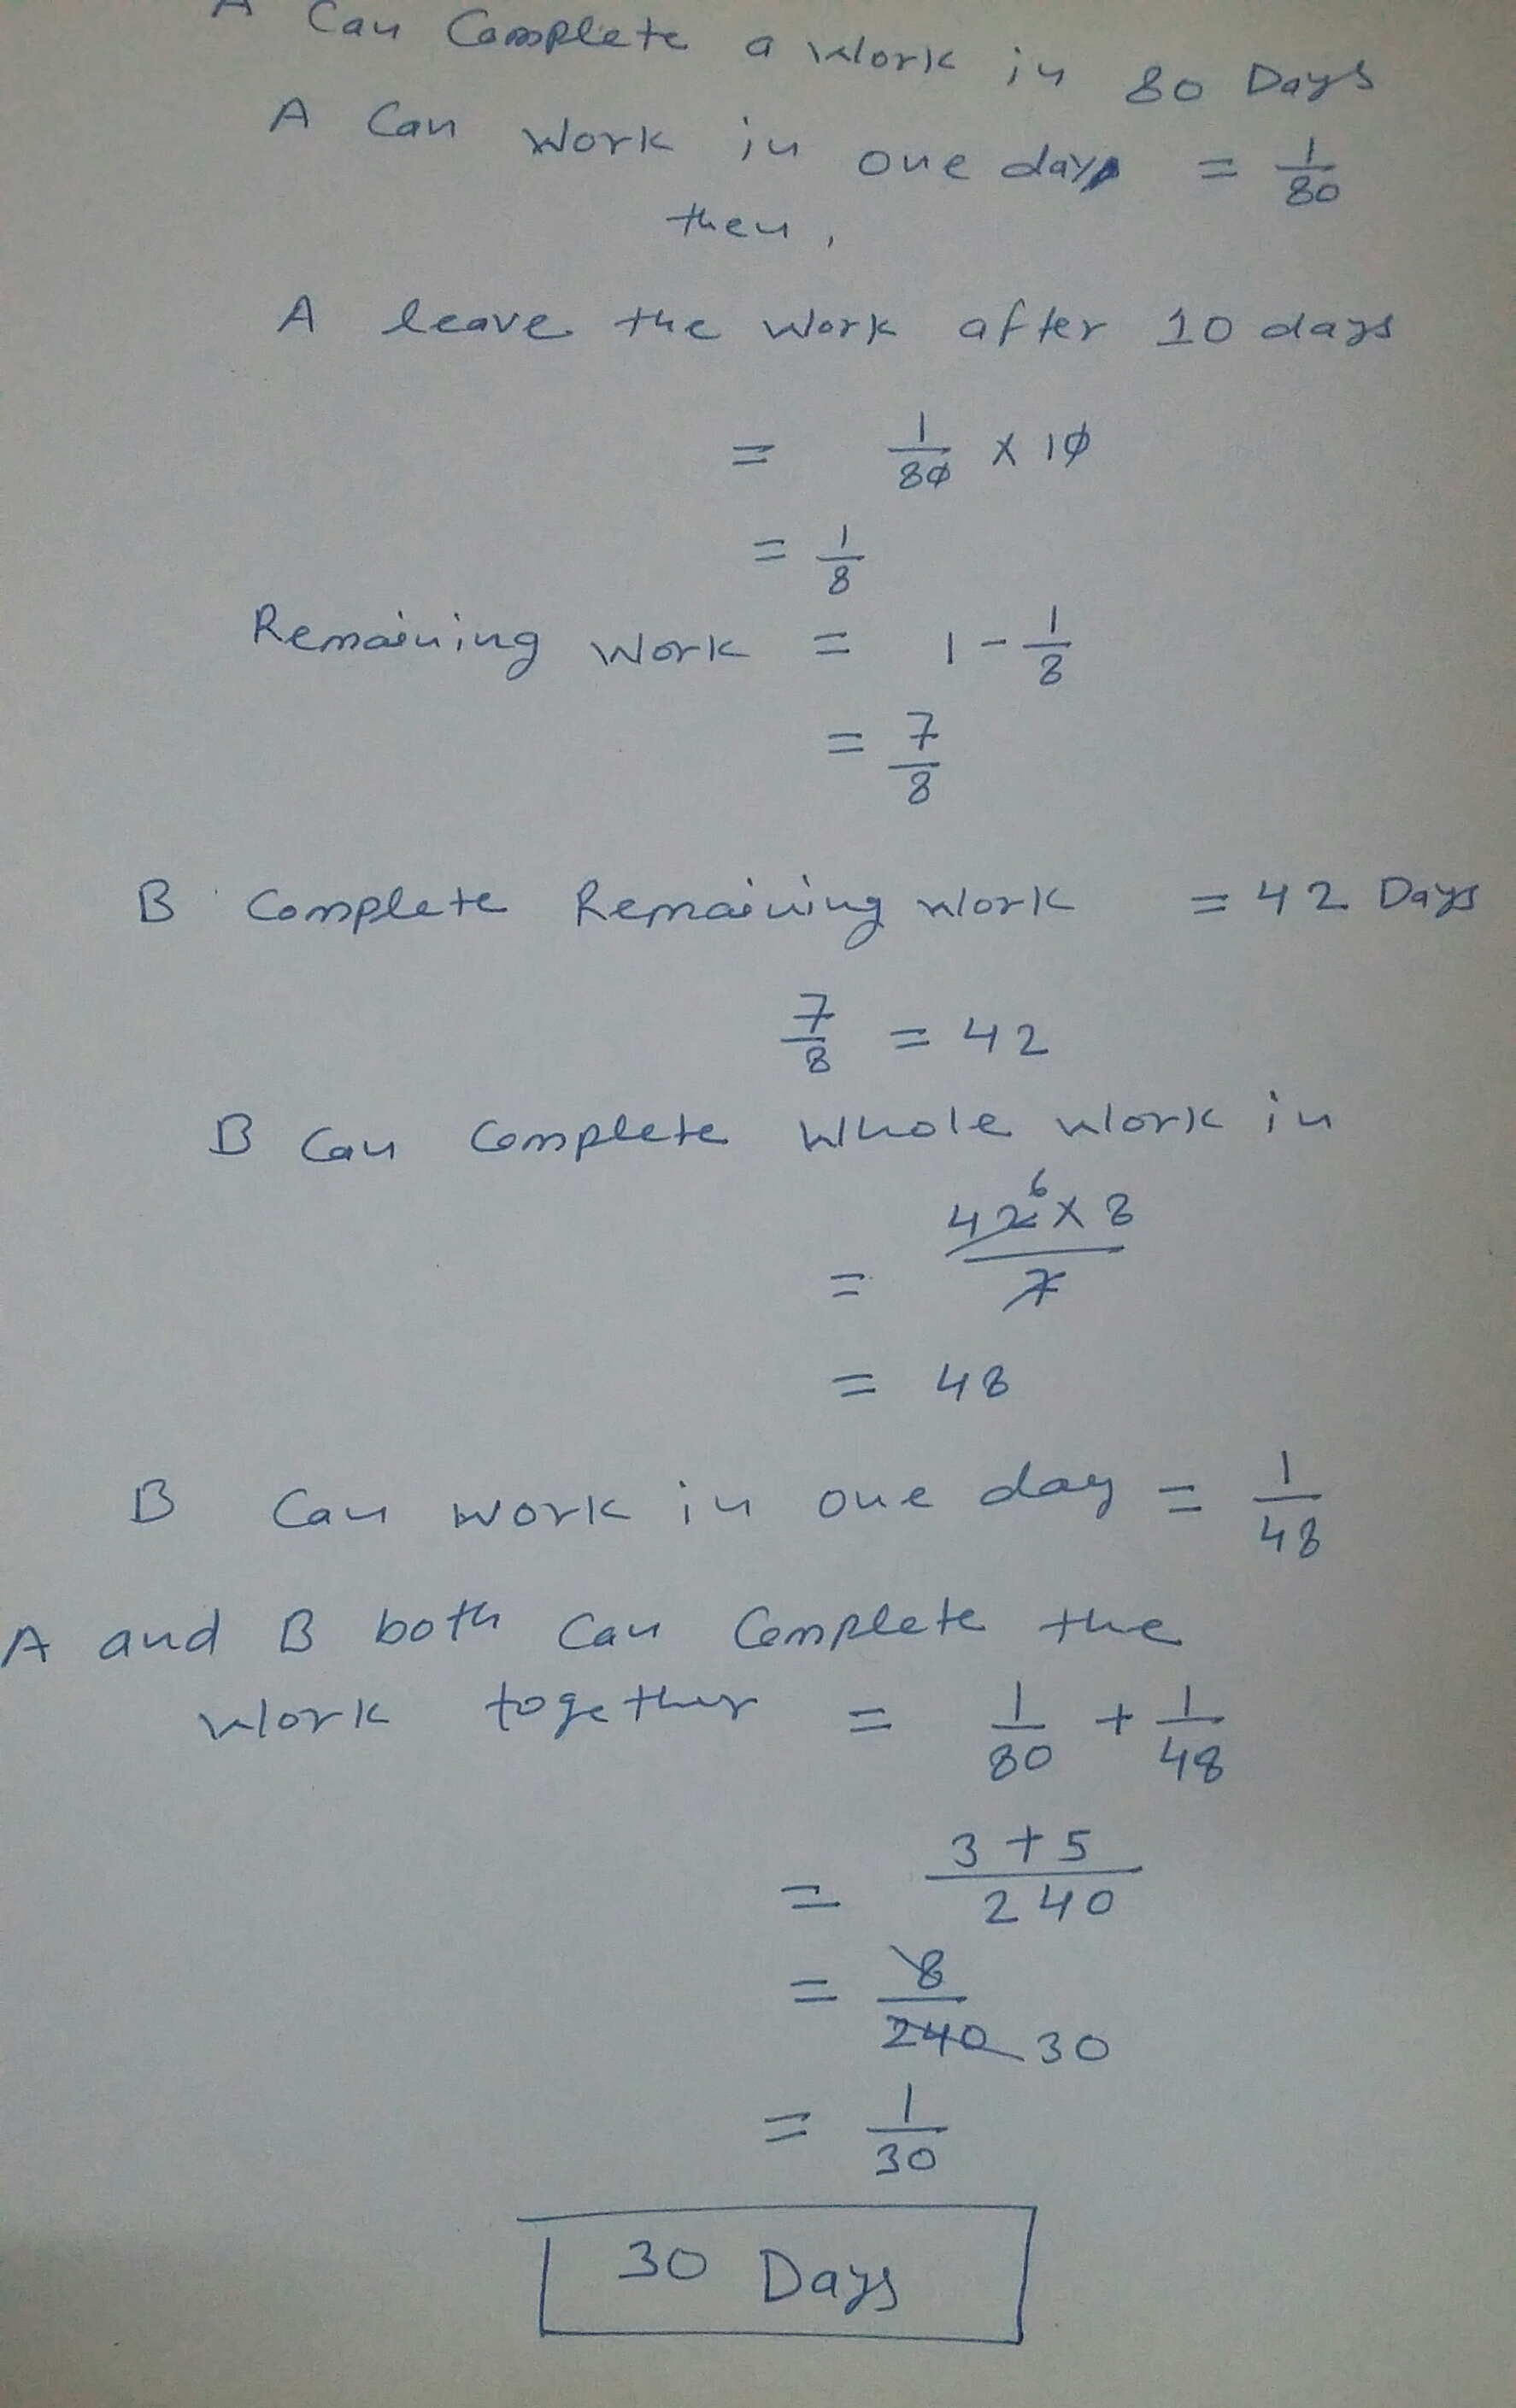 A Can Complete a work in 80 Days
A Can work in one day = 1/80
then,
A leave the work after 10 days
= 1/80 x 10
= 1/8
Remaining work = 1 - 1/8
= 7/8
B Complete Remaining work = 42 Days
7/8 = 42
B Can Complete whole work in
= 42 6 x 8 / 7
= 48
B Can work in one day = 1/48
A and B both Can Complete the
work together = 1/80 + 1/48
= 3 + 5 / 240
= 8 / 240 30
= 1/30
30 Days